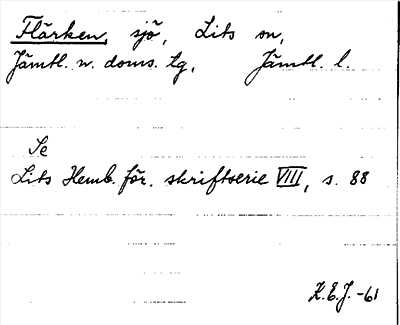 Flärken, sjö, Lits sn,
Jämtl. n. doms. tg, Jämtl. l.
Se
Lits Hemb. för. skriftserie VIII, s. 88
K.E.J. -61